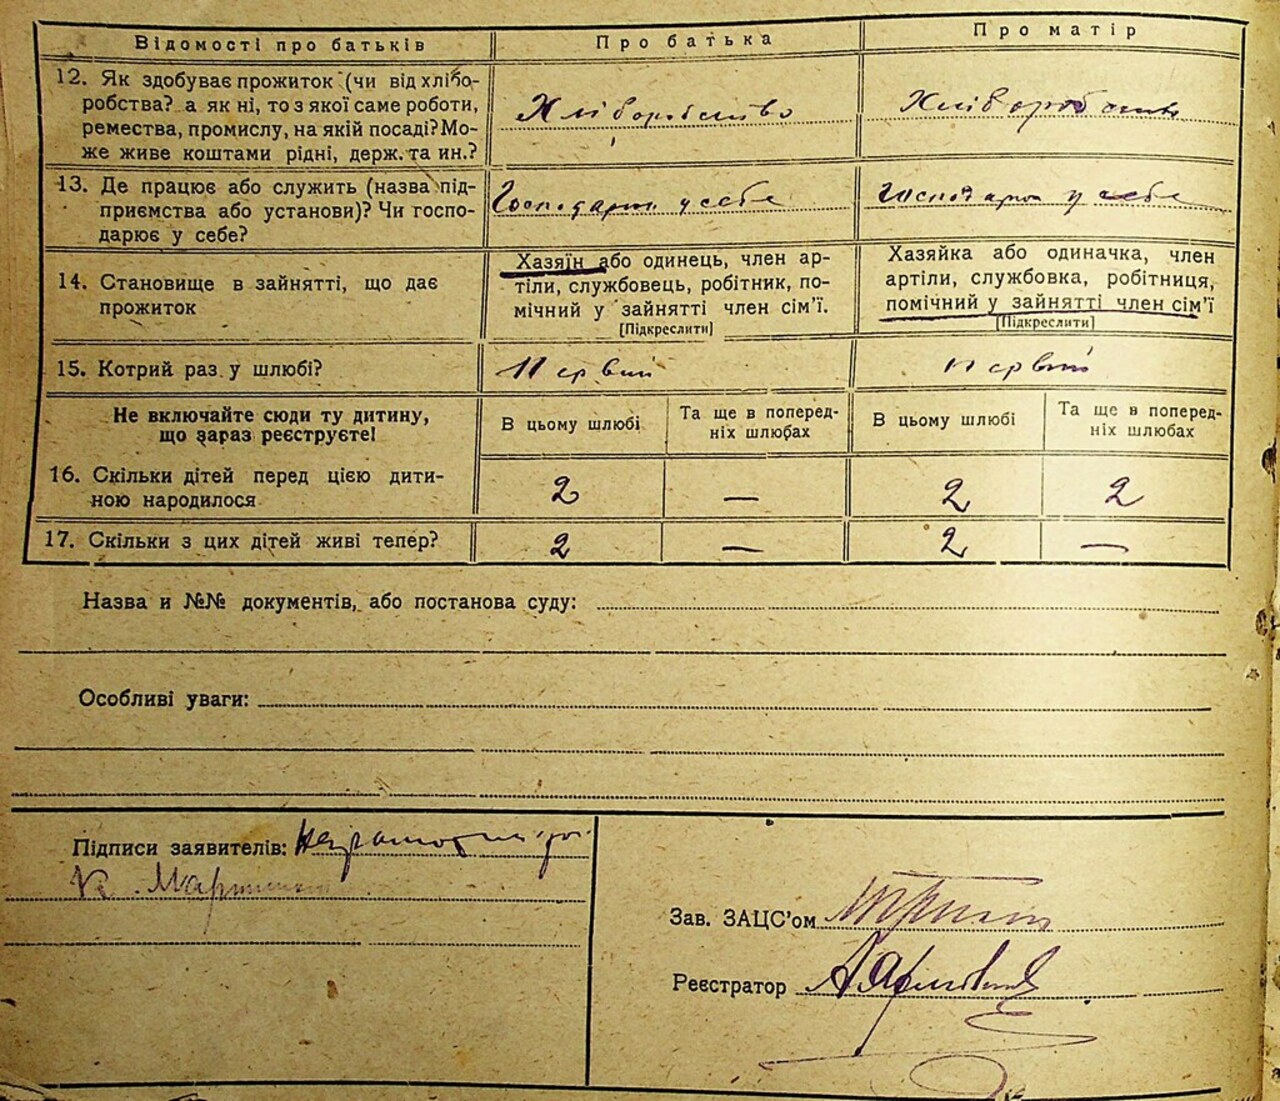 Відомості про батьків Про батька Про матір
12. Як здобуває прожиток (чи від хлібо-
робства? а як ні, то з якої саме роботи,
ремества, промислу, на якій посаді? Мо-
же живе коштами рідні, держ. та ин.?
Хліборобство Хліборобство
13. Де працює або служить (назва під-
приємства або установи)? Чи госпо-
дарює у себе?
Господарює у себе Господарює у себе
14. Становище в зайнятті, що дає
прожиток
Хазяїн або одинець, член ар-
тіли, службовець, робітник, по-
мічний у зайнятті член сім'ї.
[Підкреслити]
Хазяйка або одиначка, член
артіли, службовка, робітниця,
помічний у зайнятті член сім'ї
[Підкреслити]
15. Котрий раз у шлюбі? Первий Первий
Не включайте сюди ту дитину,
що зараз реєструєте!
В цьому шлюбі
Та ще в поперед-
ніх шлюбах
В цьому шлюбі
Та ще в поперед-
ніх шлюбах
16. Скільки дітей перед цією дити-
ною народилося
2 — 2 2
17. Скільки з цих дітей живі тепер? 2 — 2 —
Назва и №№ документів, або постанова суду:
Особливі уваги:
Підписи заявителів:
К.
Зав. ЗАЦС'ом
Реєстратор